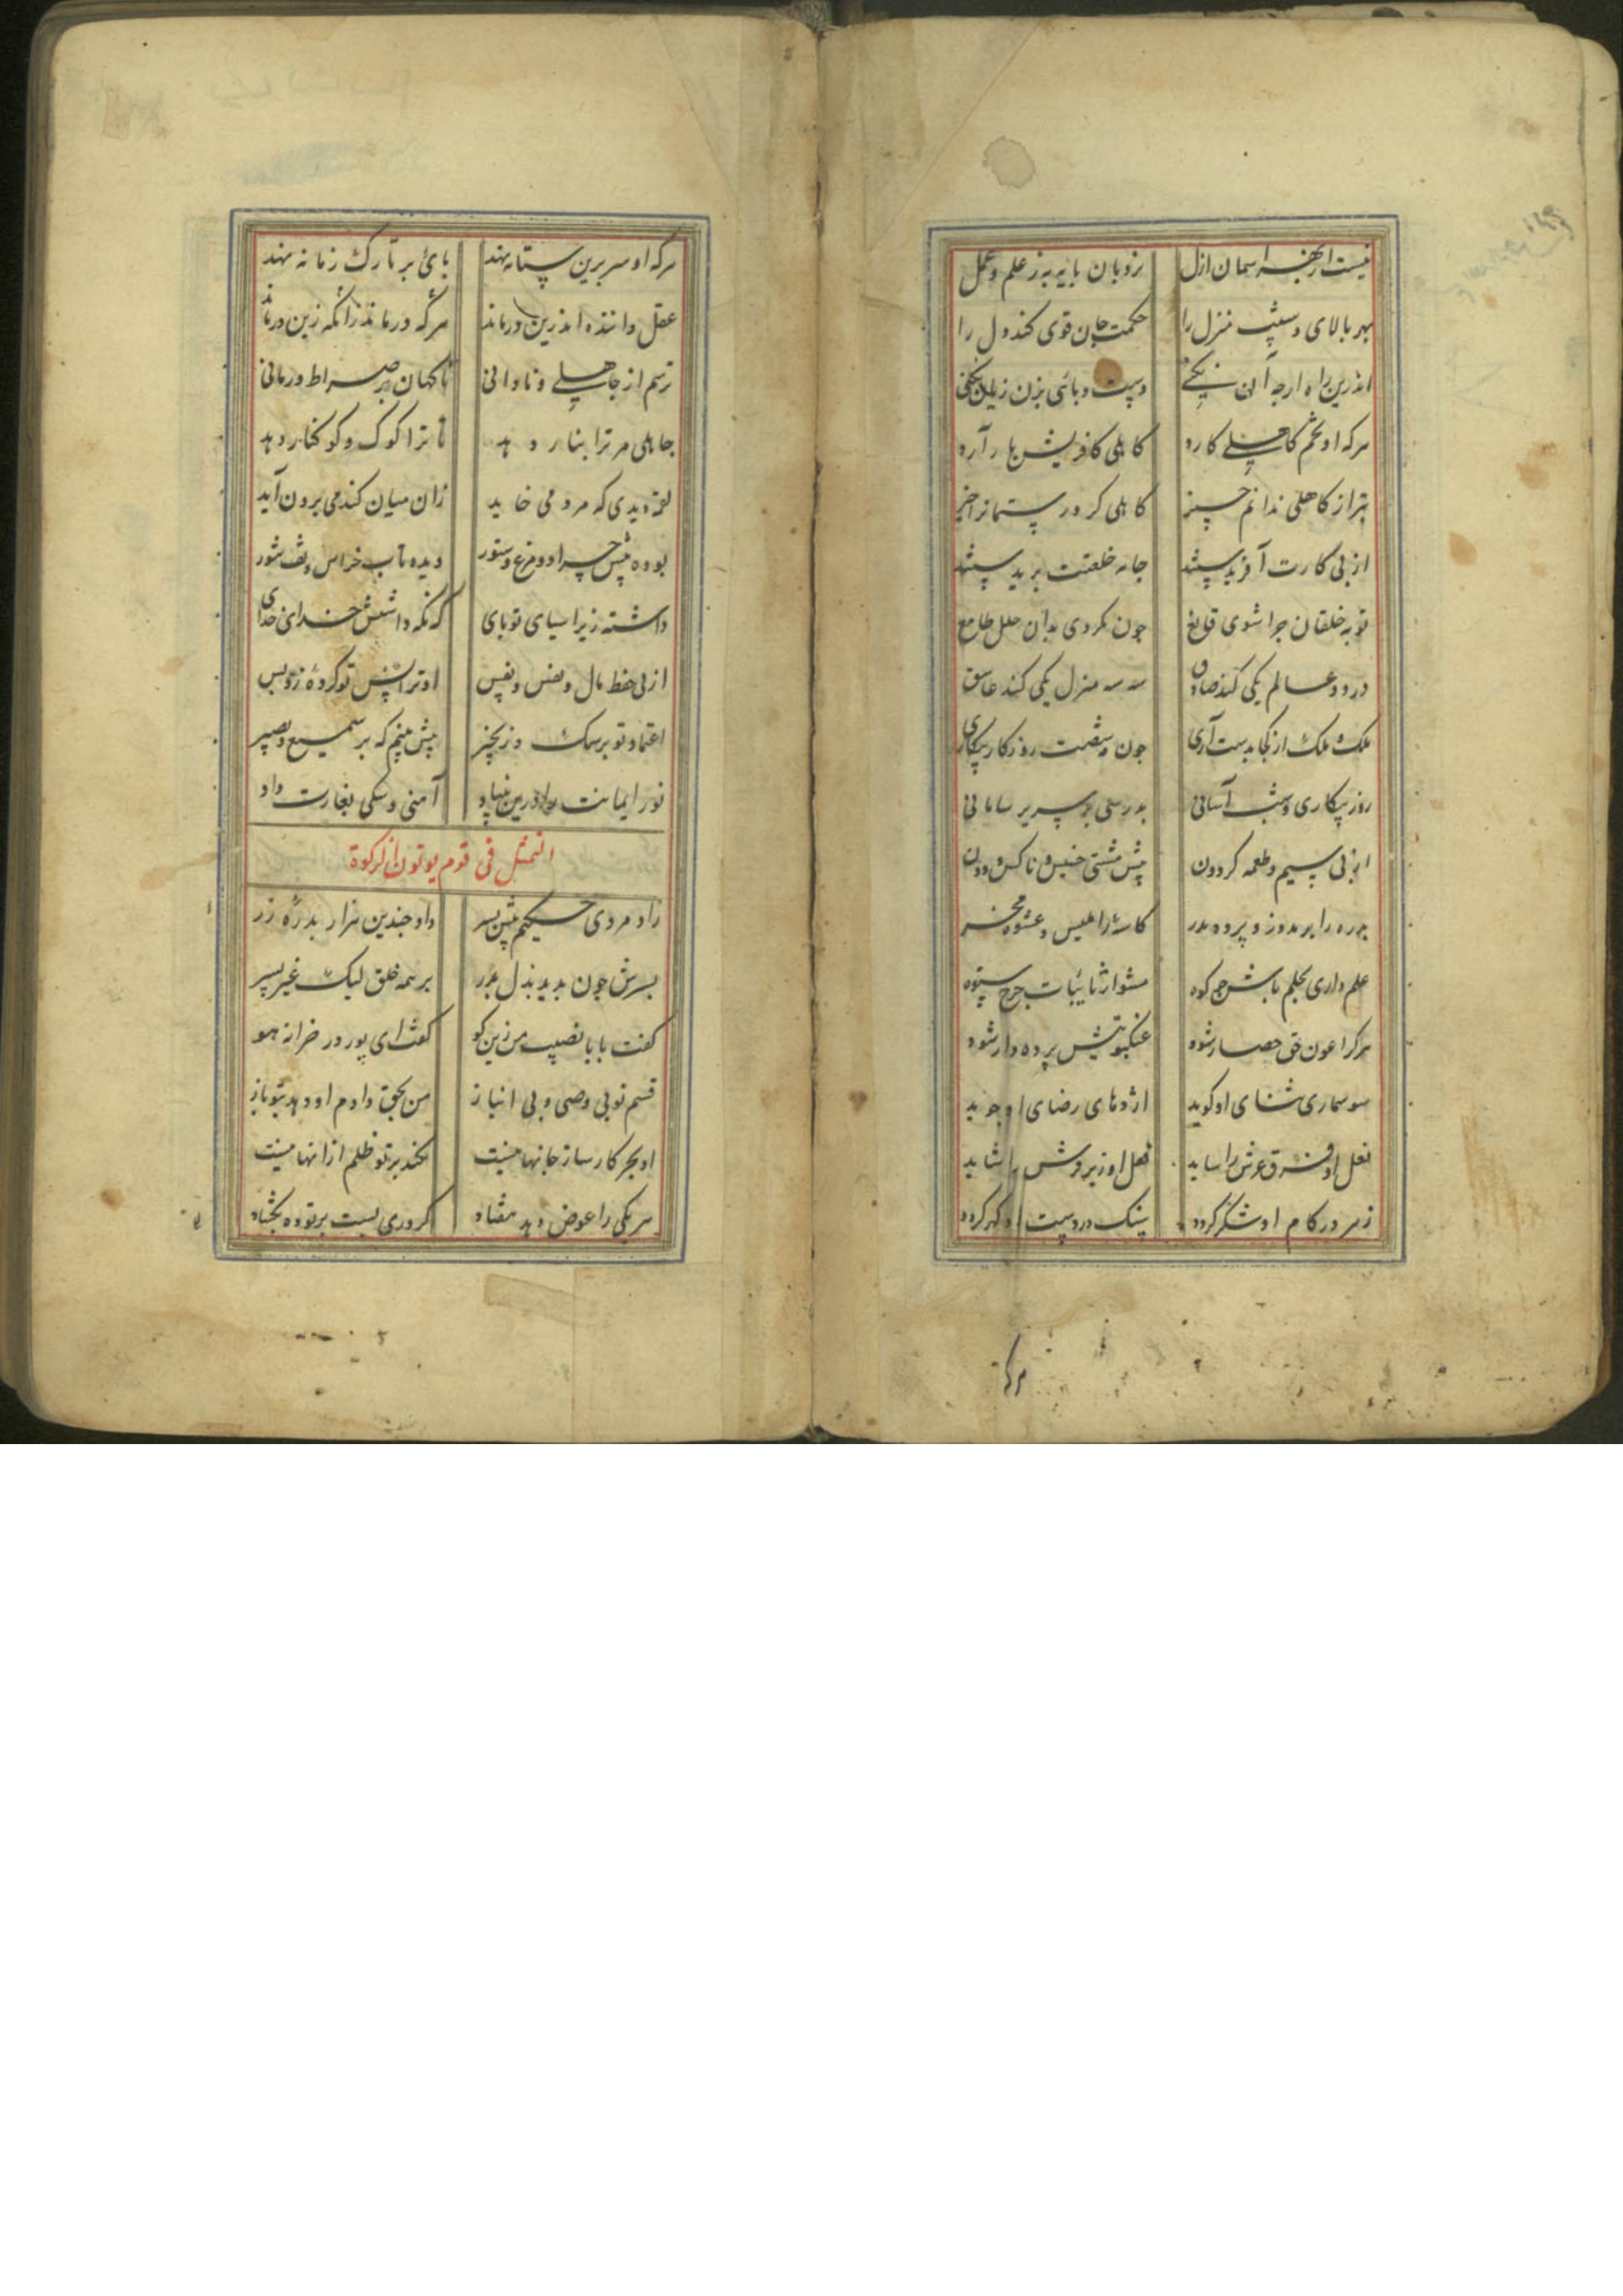 نیست از بهر آسمان ازل نردبان پایه به ز علم و عمل
بهر بالای و شیب منزل را حکمت جان قوی کند دل را
اندرین راه ارچه آن نکنی دست و پائی بزن زیان نکنی
هرکه او تخم کاهلی کارد کاهلی کافریش بار آرد
بتر از کاهلی ندانم چیز کاهلی کرد رستمانرا حیز
از پی کارت آفریدستند جامه خلقتت بریدستند
تو به خلقان چرا شوی قانع چون نکردی بدان حلل طامع
در دو عالم یکی کند صادق سه سه منزل یکی کند عاشق
ملک و ملک از کجا بدست آری چون دو شصت روزکار بیکاری
روز بیکاری و شب آسانی بدرسی بر سریر ساسانی
از پی سیم و طعمه کردون پیش مشتی خسیس ناکس و دون
بدره را بدوز و پرده مدر کاسه را لیس و عشوه مخر
علم داری بحلم باش چو کوه مشو از نایبات چرخ ستوه
هرکرا عون حق حصار شود عنکبوتیش پرده دار شود
سوسماری ثنای او کوید اژدهای رضای او جوید
نعل او فرق عرش را ساید فعل او زیر فرش را شاید
زهر در کام او شکر کردد سنک در دست او کهر کردد
هرکه
هرکه او سر برین ستانه نهد پای بر تارک زمانه نهد
عقل داننده اندرین درماند هرکه درماند زانکه زین درماند
ترسم از جاهلی و نادانی ناکهان بر صراط درمانی
جاهلی مر ترا بنار دهد تا ترا کوک و کوکنار دهد
لقمه دیدی که مرد می خاید زان میان کندمی برون آید
بوده پیش چرا دو مرغ و ستور دیده تاب خراس و تف شور
داشته زیر آسیای تو پای که نکه داشتش خدای خدای
از پی حفظ مال و نفس و نفس او ترا بس تو کرده زو بس
اعتماد تو بر سک و زنجیر بیش بینم که بر سمیع و بصیر
نور ایمانت را درین بنیاد آهنی و سکی بغارت داد
التمثل فی قوم یوتون الزکوة
راد مردی حکیم پیش پسر داد چندین هزار بدره زر
پسرش چون بدید بذل پدر بر همه خلق لیک غیر پسر
کفت بابا نصیب من زین کو کفت ای پور در خزانه هو
قسم تو بی وصی و بی انباز من بحق دادم او دهد بتو باز
او بجز کارساز جانها نیست نکند بر تو ظلم از انها نیست
هر یکی را عوض دهد هفتاد کر دری بست بر تو ده بکشاد